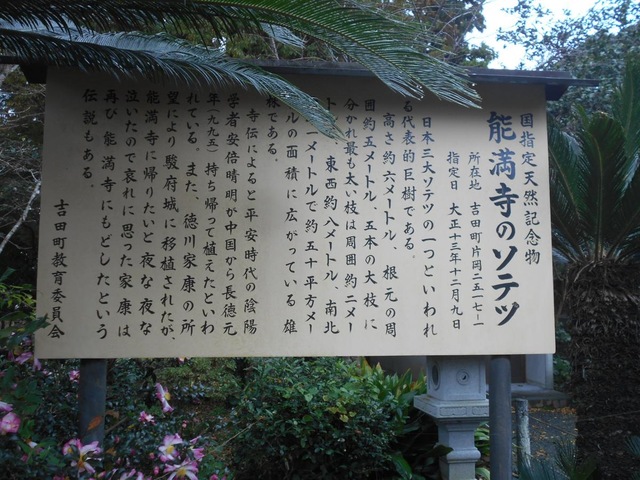 国指定天然記念物
能満寺のソテツ
所在地 吉田町片岡二五一七-一
指定日 大正十三年十二月九日
日本三大ソテツの一つといわれ
る代表的巨樹である。
高さ約六メートル、根元の周
囲約五メートル、五本の大枝に
分かれ最も太い枝は周囲約二メー
トル、東西約八メートル、南北
一メートルで約五十平方メー
ルの面積に広がっている雄
株である。
寺伝によると平安時代の陰陽
学者安倍晴明が中国から長徳元
年(九九五)持ち帰って植えたといわ
れている。また、徳川家康の所
望により駿府城に移植されたが、
能満寺に帰りたいと夜な夜な
泣いたので哀れに思った家康は
再び能満寺にもどしたという
伝説もある。
吉田町教育委員会